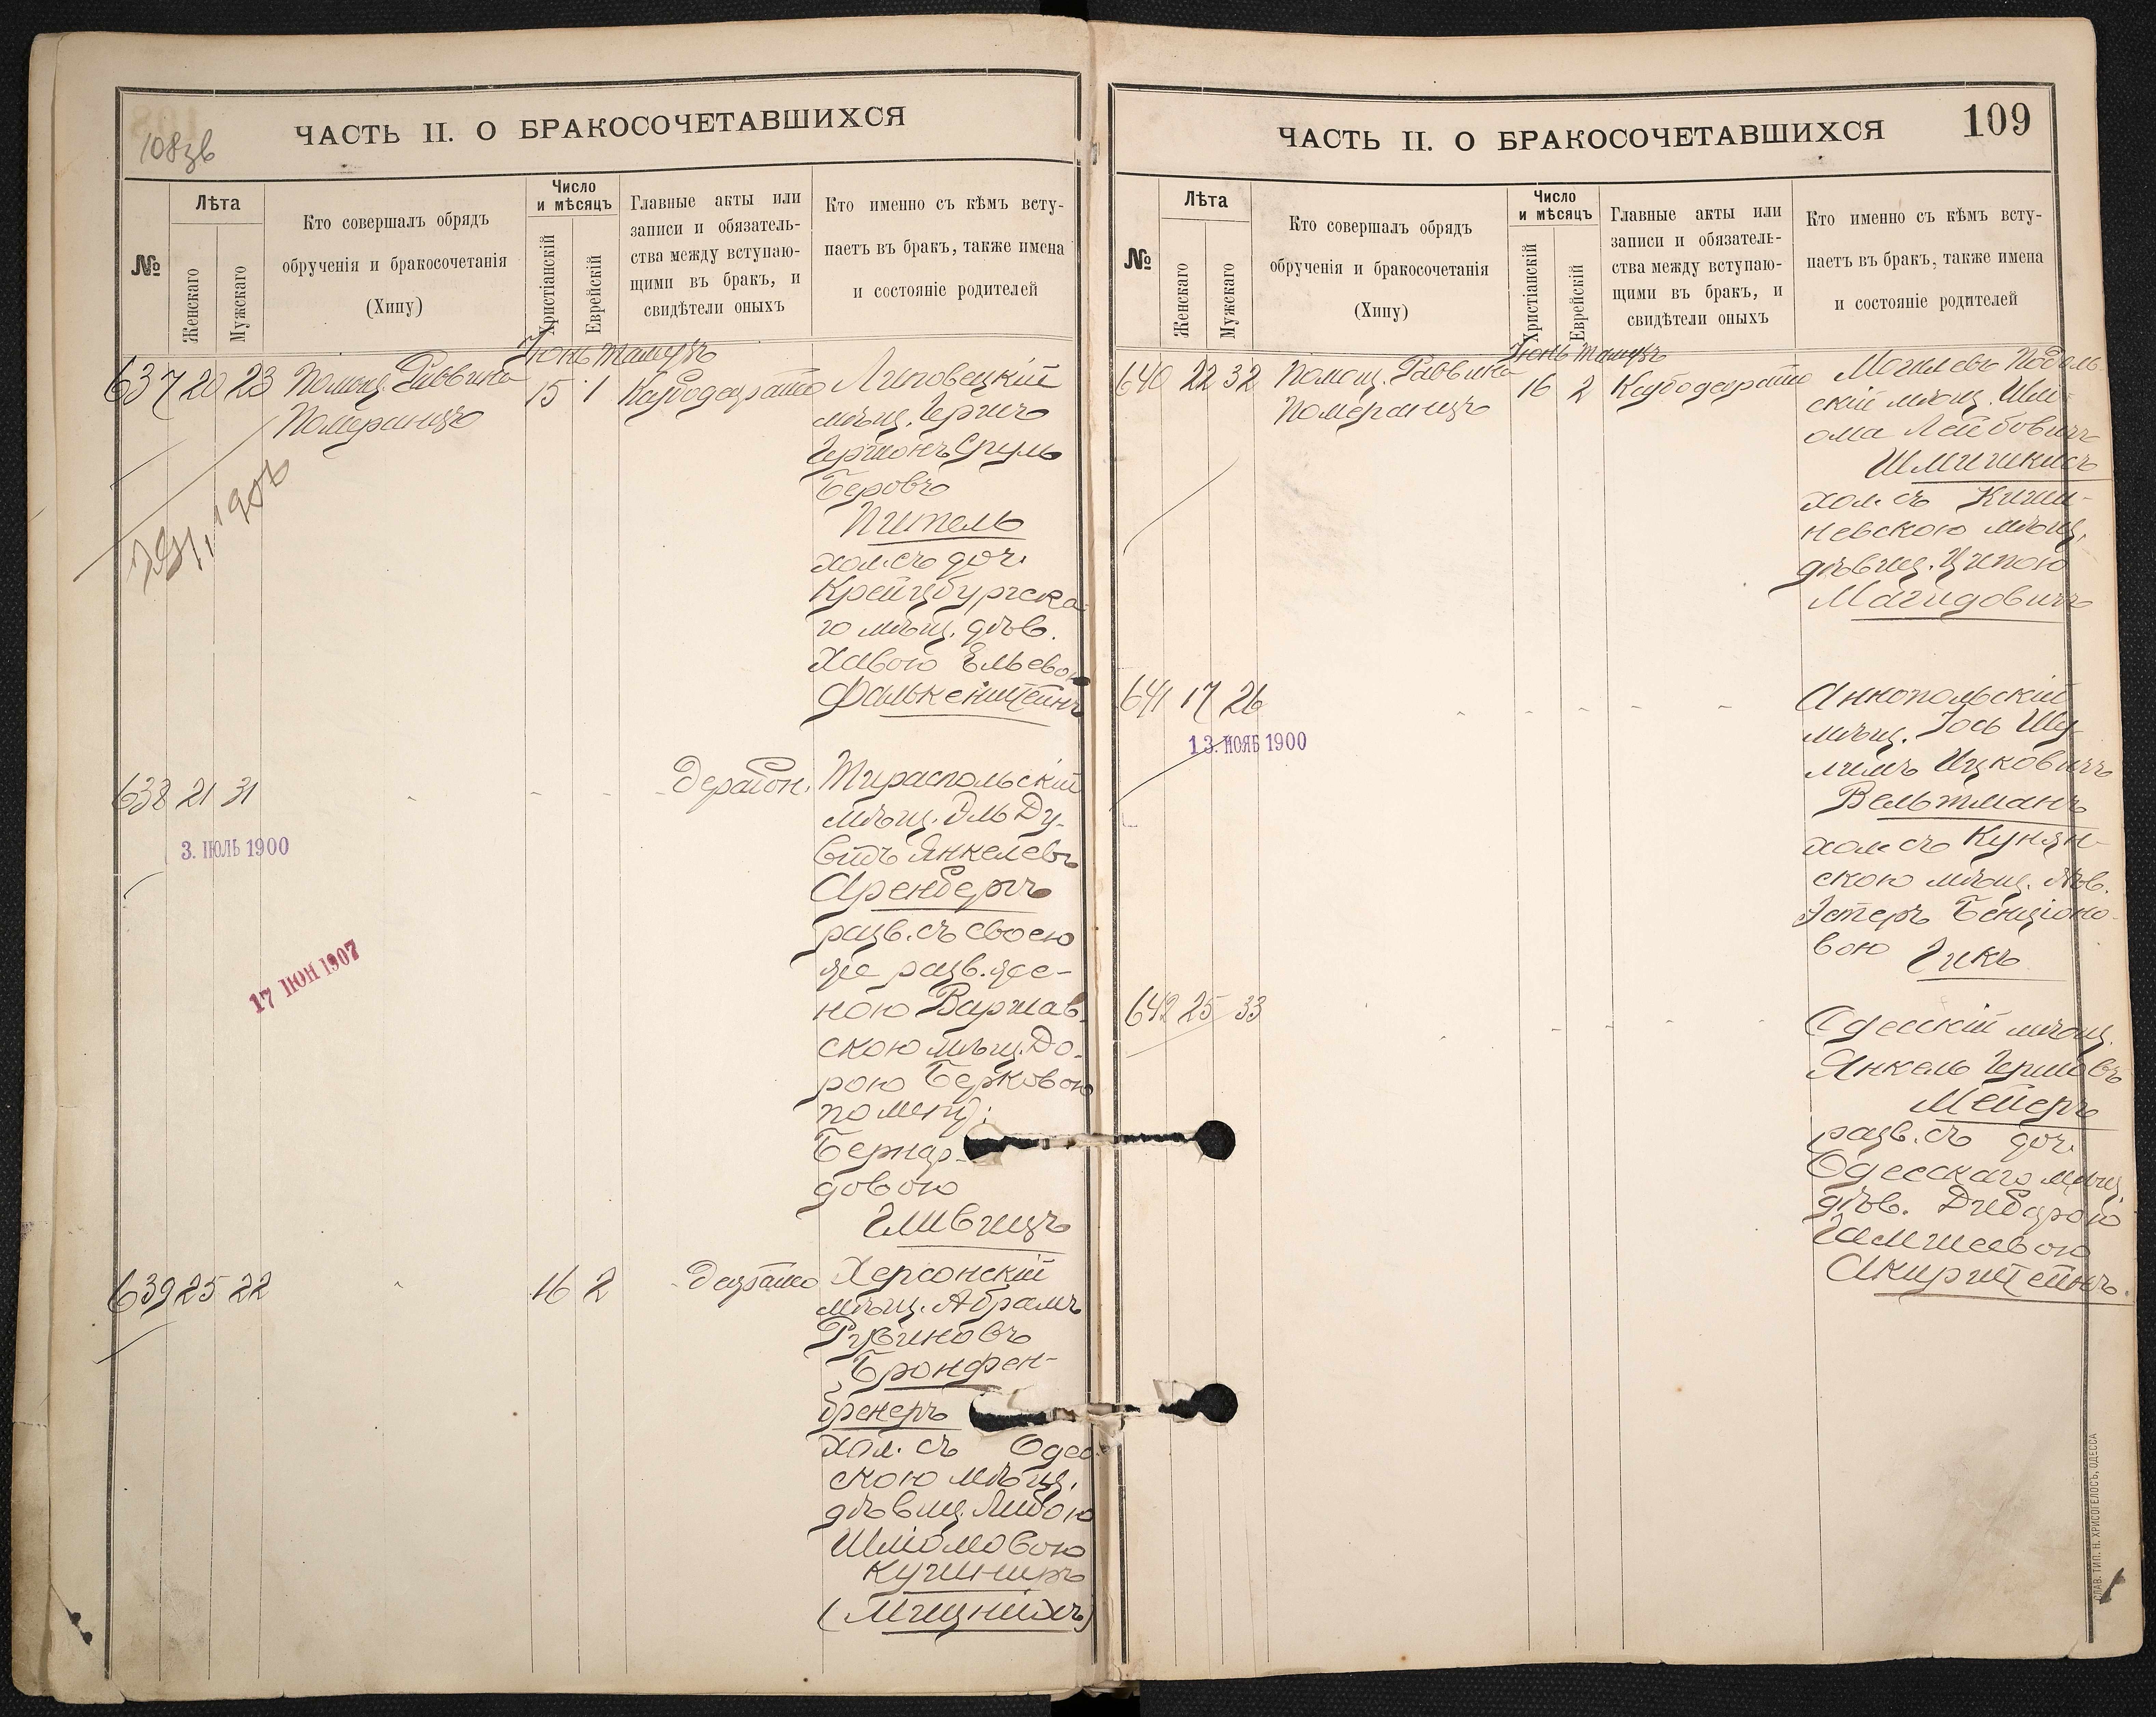 108зв
ЧАСТЬ II. О БРАКОСОЧЕТАВШИХСЯ
№
Лѣта
Женскаго
Мужскаго
Кто совершалъ обрядъ
обрученія и бракосочетанія
(Хипу)
Число
и мѣсяцъ
Христіанскій
Еврейскій
Главные акты или
записи и обязатель-
ства между вступаю-
щими въ бракъ, и
свидѣтели оныхъ
Кто именно съ кѣмъ всту-
паетъ въ бракъ, также имена
и состояніе родителей
Іюнь Тамузъ
637 20 23 Помощ. Раввина
Померанцъ
15 1
Липовецкій
мѣщ. Гершъ
Гершонъ Сруль
Беровъ
Питель
хол. съ доч.
Крейцбургска
го мѣщ. дѣв.
Хавою Ельевою
Фалькенштейнъ
638 21 31
3. ІЮЛЬ 1900
17 ІЮН 1907
Тираспольскій
мѣщ. Эль Ду-
видъ Янкелевъ
Аренбергъ
разв. съ своею
же разв. же-
ною Варшав-
скою мѣщ. До-
рою Берковою
по метр.
Бернар-
довою
Гливицъ
639 25 22
16 2
Херсонскій
мѣщ. Абрамъ
Рувиновъ
Бронфен-
бренеръ
хол. съ Одес-
скою мѣщ.
дѣвиц. Либою
Шліомовою
Кушниръ
ЧАСТЬ II. О БРАКОСОЧЕТАВШИХСЯ
109
№
Лѣта
Женскаго
Мужскаго
Кто совершалъ обрядъ
обрученія и бракосочетанія
(Хипу)
Число
и мѣсяцъ
Христіанскій
Еврейскій
Главные акты или
записи и обязатель-
ства между вступаю-
щими въ бракъ, и
свидѣтели оныхъ
Кто именно съ кѣмъ всту-
паетъ въ бракъ, также имена
и состояніе родителей
Іюнь Тамузъ
640 22 32 Помощ. Раввина
Померанцъ
16 2
Могилевъ Подоль
скій мѣщ. Шлі-
ома Лейбовичъ
Шмишкисъ
хол. съ Киши-
невскою мѣщ.
дѣвиц. Ципою
Магидовичъ
641 17 26
13. НОЯБ 1900
Аннопольскій
мѣщ. Іось Шу
лимъ Ицковичъ
Вельтманъ
хол. съ Кунян-
скою мѣщ. дѣв.
Эстеръ Бенціоно-
вою Гикъ
642 25 33
Одесскій мѣщ.
Янкель Гершовъ
Мейеръ
разв. съ доч.
Одесскаго мѣщ.
дѣв. Диборою
Гамшеевою
Акирштейнъ.
СЛАВ. ТИП. Н. ХРИСОГЕЛОСЪ, ОДЕССА